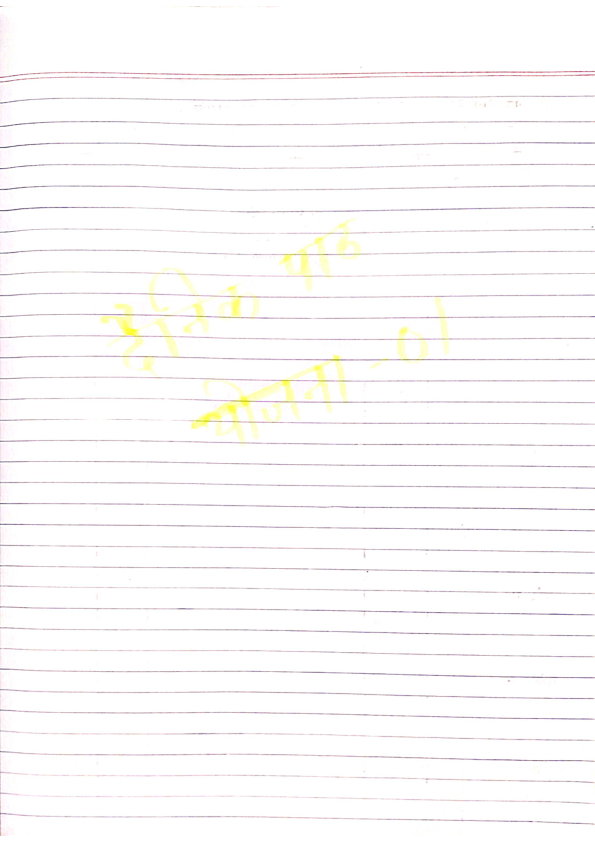 दैनिक पाठ
योजना - 01